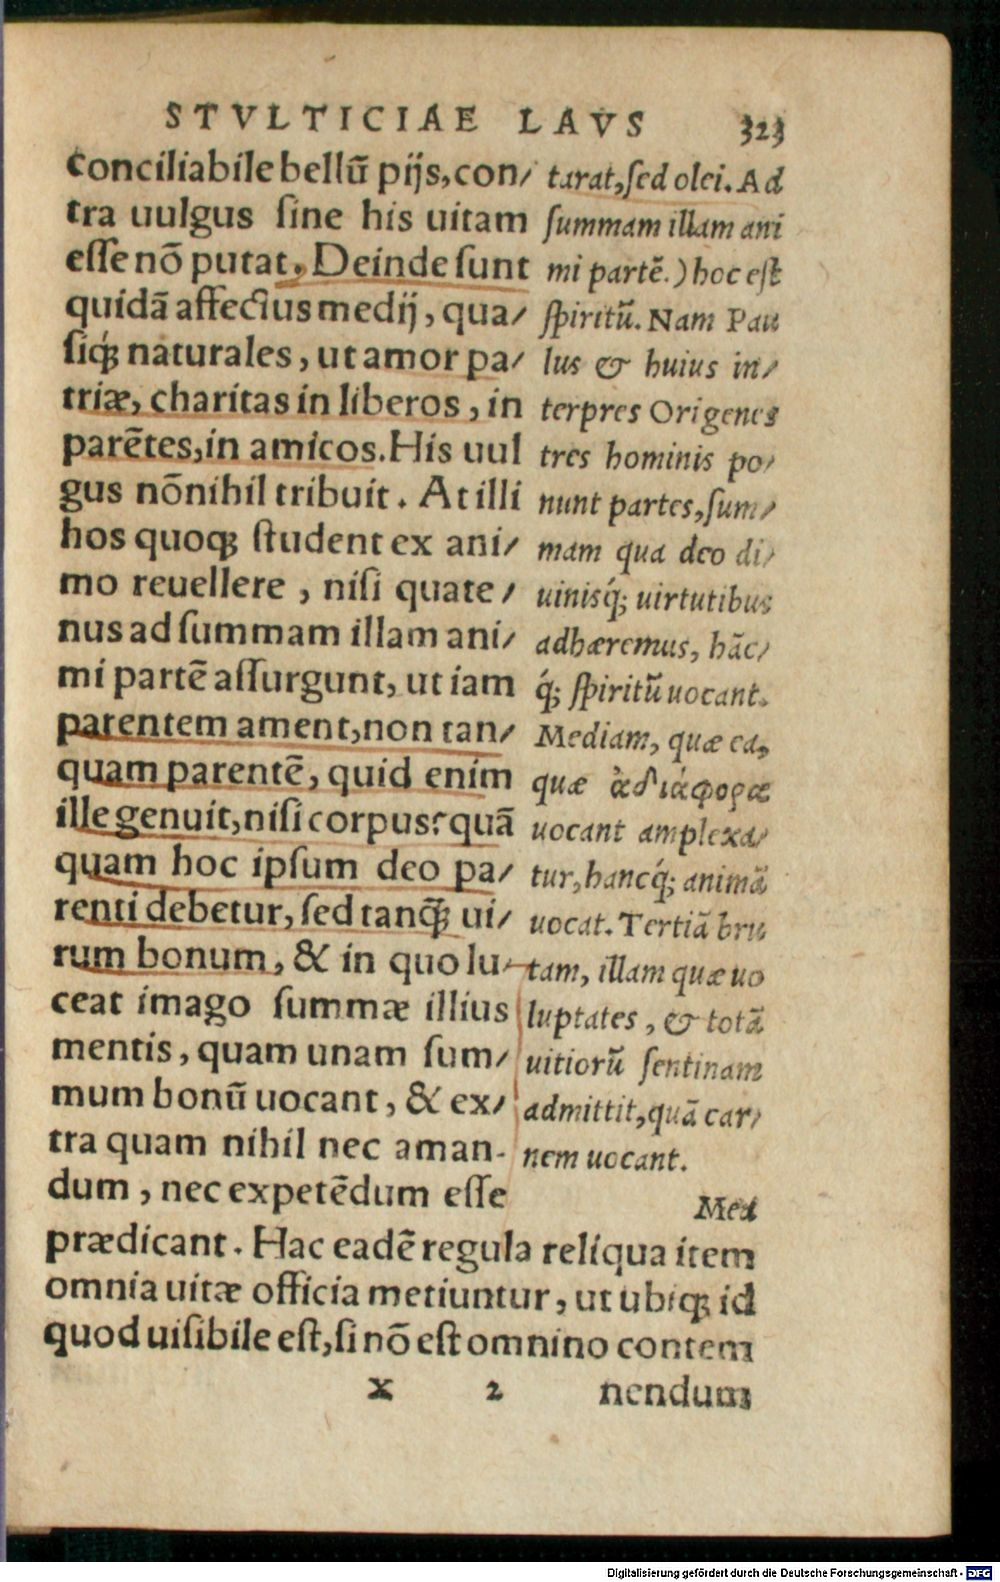 STVLTICIAE LAVS 323
conciliabile bellū pijs, con/
tra uulgus sine his uitam
esse nō putat. Deinde sunt
quidā affectus medij, qua/
siq́; naturales, ut amor pa/
triæ, charitas in liberos, in
parētes, in amicos. His uul
gus nōnihil tribuit. At illi
hos quoq; student ex ani/
mo reuellere, nisi quate/
nus ad summam illam ani/
mi partē assurgunt, ut iam
parentem ament, non tan/
quam parentē, quid enim
ille genuit, nisi corpus? quā
quam hoc ipsum deo pa/
renti debetur, sed tanq̄; ui/
rum bonum, & in quo lu/
ceat imago summæ illius
mentis, quam unam sum/
mum bonū uocant, & ex/
tra quam nihil nec aman-
dum, nec expetēdum esse
prædicant. Hac eadē regula reliqua item
omnia uitæ officia metiuntur, ut ubiq; id
quod uisibile est, si nō est omnino contem
tarat, sed olei. Ad
summam illam ani
mi partē.) hoc est
spiritū. Nam Pau
lus & huius in/
terpres Origenes
tres hominis po/
nunt partes, sum/
mam qua deo di/
uinisq́; uirtutibus
adhæremus, hāc/
q́; spiritū uocant.
Mediam, quæ ea,
quæ ἀδιάφορα
uocant amplexa/
tur, hancq́; animā
uocat. Tertiā bru
tam, illam quæ uo
luptates, & totā
uitiorū sentinam
admittit, quā car/
nem uocant.
Med
x 2 nendum
Digitalisierung gefördert durch die Deutsche Forschungsgemeinschaft - DFG